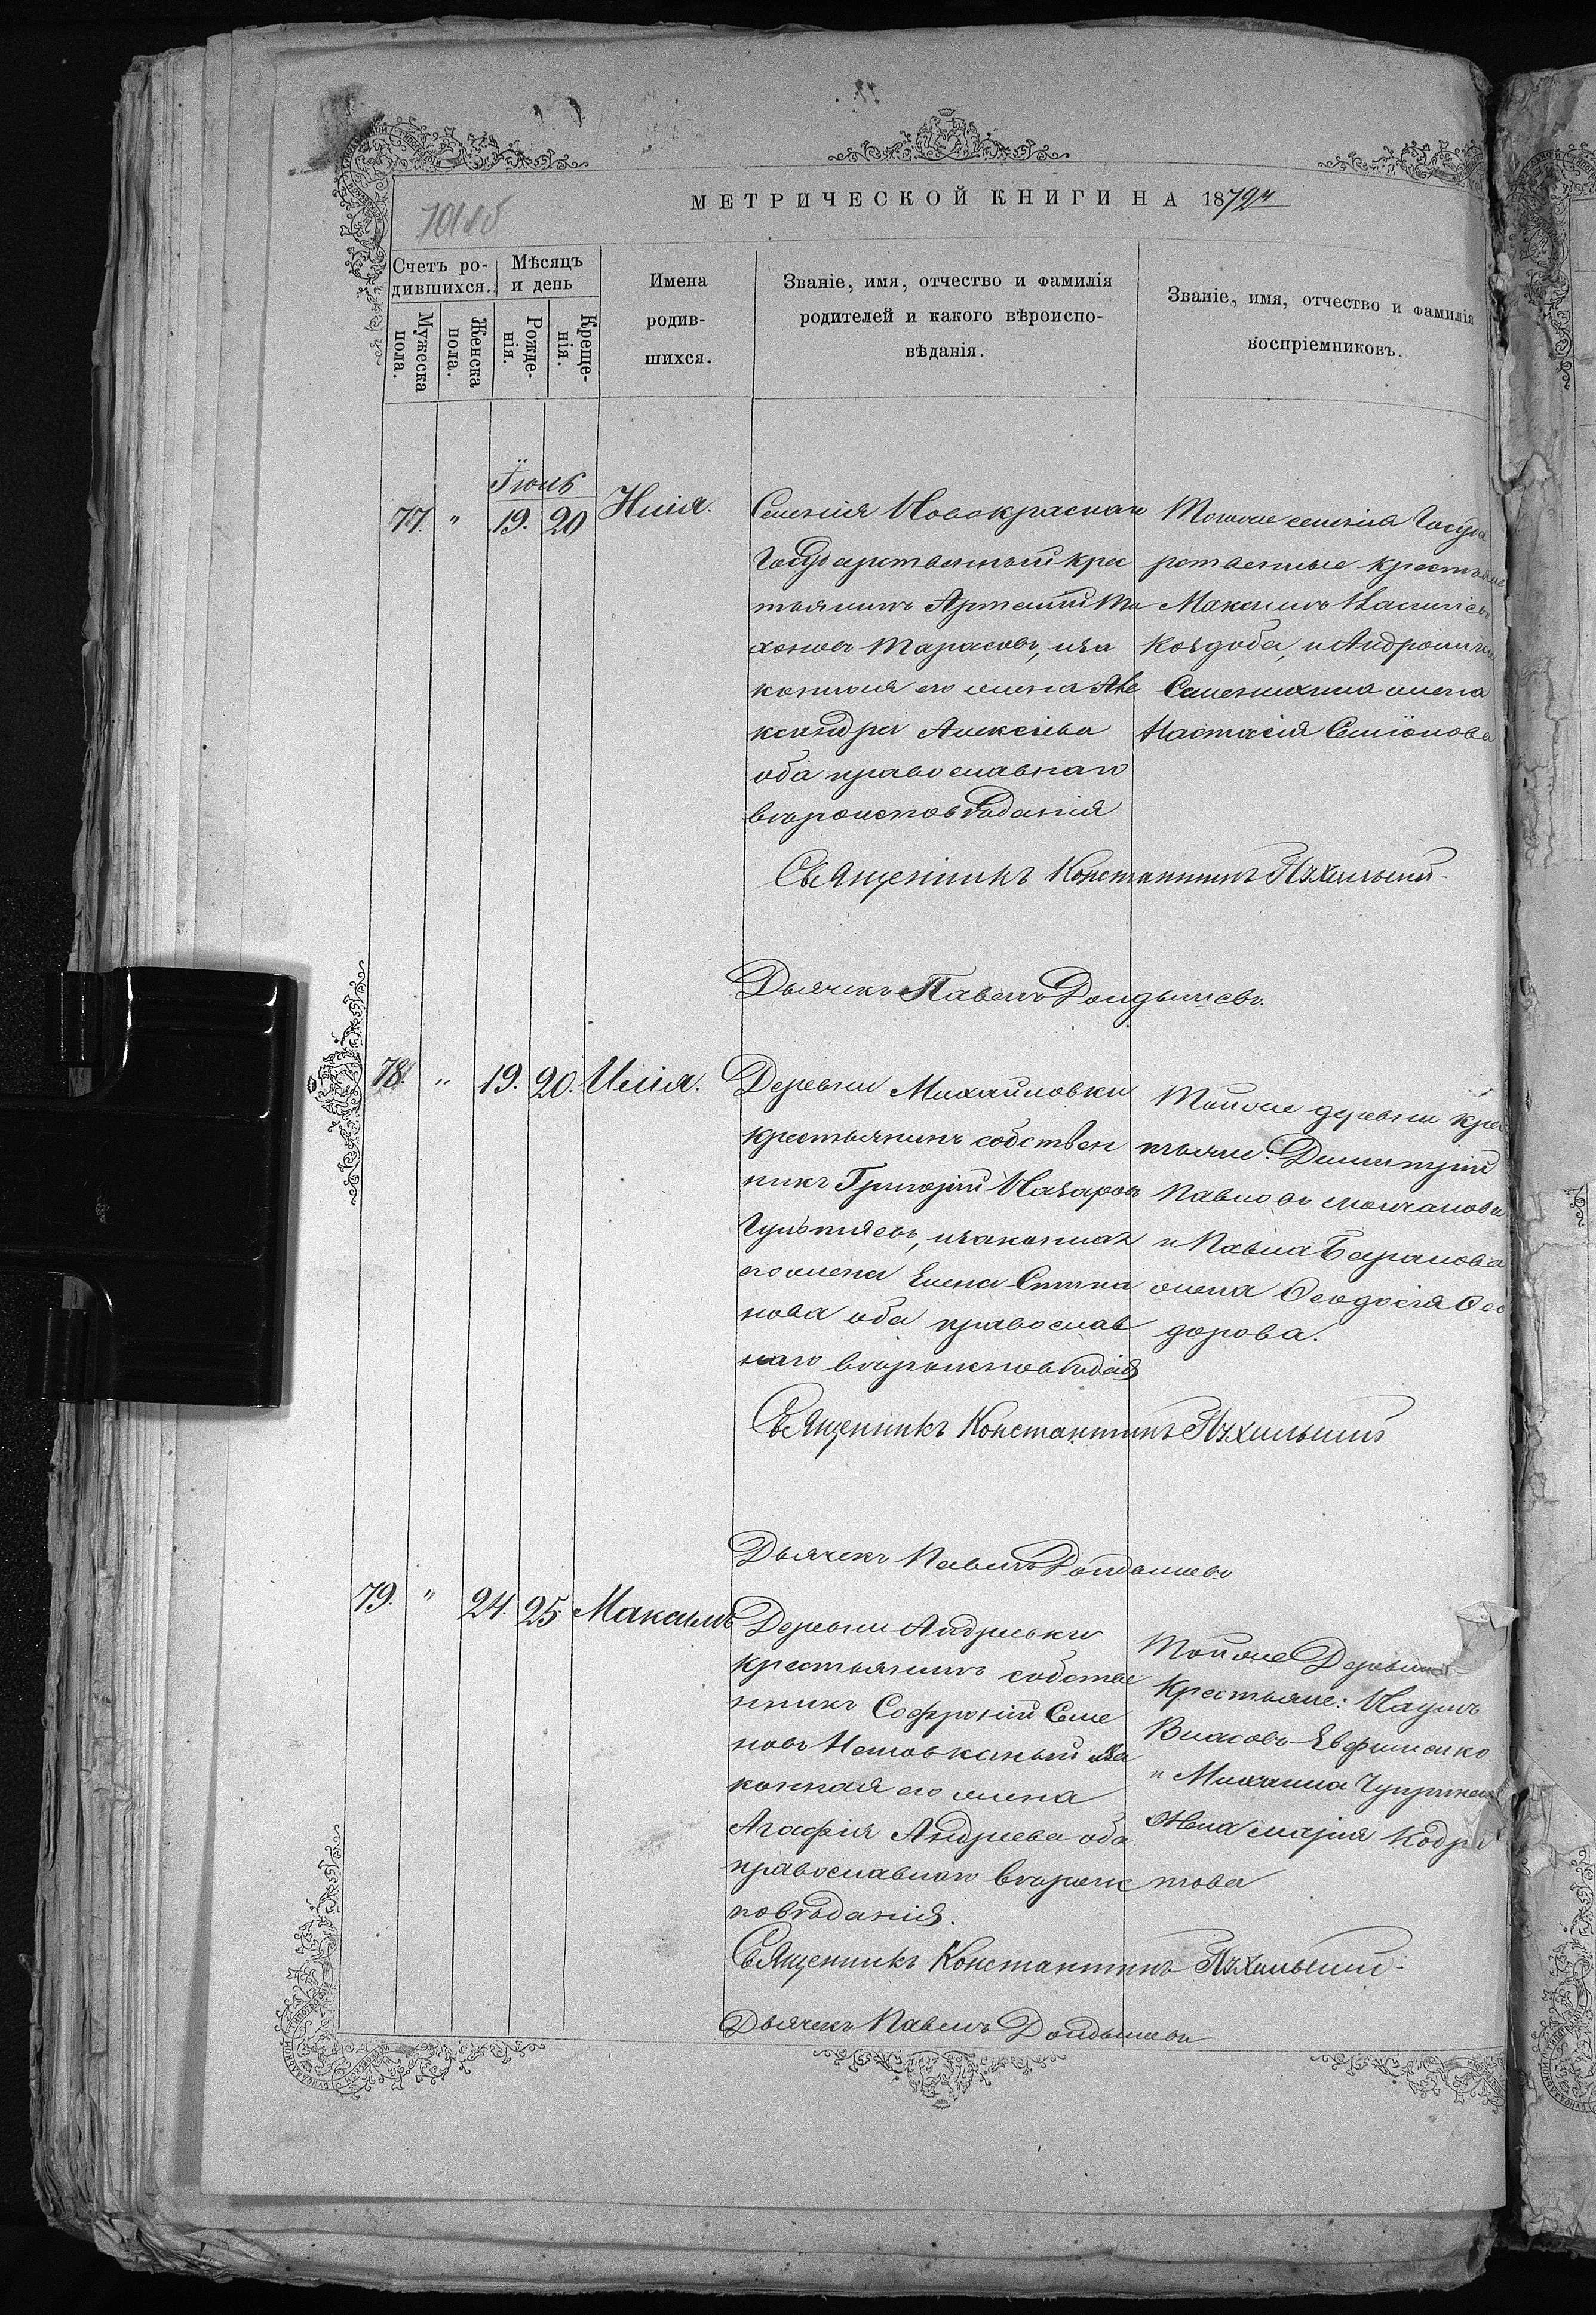 МЕТРИЧЕСКОЙ КНИГИ НА 1872й
Счетъ ро-
дившихся.
Мѣсяцъ
и день
Мужеска
пола.
Женска
пола.
Рожде-
нія.
Креще-
нія.
Имена
родив-
шихся.
Званіе, имя, отчество и фамилія
родителей и какого вѣроиспо-
вѣданія.
Званіе, имя, отчество и фамилія
воспріемниковъ.
Іюнь
77. " 19. 20 Илія.
Селенія Новокрасная
Государственный крес
тьянинъ Артемій Ти
хоновъ Тарасовъ, иза
конная его жена Але
ксандра Алексѣева
оба православнаго
вѣроисповѣданія
Тогоже селенія Госуда
рственные крестьяне
Максимъ
Коздоба, и
жена
Настасія Семіонова
Священникъ Константинъ
Дьячекъ Павелъ
78. " 19. 20. Илія.
Деревни Михайловки
крестьянинъ собствен
никъ Григорій Назаровъ
изаконная
его жена Елена Степа
нова оба православ
наго
Тойже деревни крес
тьяне: Димитрій
Павловъ Молчановъ
и Павла Баранова
жена Ѳеодосія Ѳео
дорова.
Священникъ Константинъ
Дьячекъ Павелъ
79. " 24. 25 Максимъ
Деревни Андреевки
крестьянинъ собстве
нникъ Софроній Семе
новъ иза
конная его жена
Агафія Андреева оба
православнаго вѣроис
повѣданія.
Тойже Деревни
Крестьяне: Наумъ
Власовъ Евфименко
и Михаила
жена Марія Кодра
това
Священникъ Константинъ
Дьячекъ Павелъ